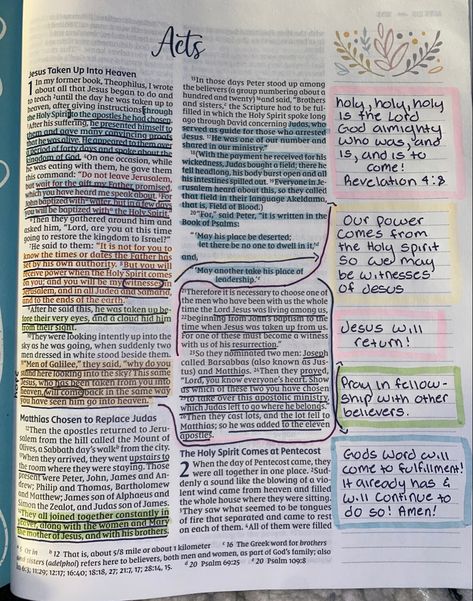 Acts
Jesus Taken Up Into Heaven
1 In my former book, Theophilus, I wrote
about all that Jesus began to do and
to teach 2until the day he was taken up to
heaven, after giving instructions through
the Holy Spirit to the apostles he had chosen.
3After his suffering, he presented himself to
them and gave many convincing proofs
that he was alive. He appeared to them over
a period of forty days and spoke about the
kingdom of God. 4On one occasion, while
he was eating with them, he gave them
this command: "Do not leave Jerusalem,
but wait for the gift my Father promised,
which you have heard me speak about. 5For
John baptized with water, but in a few days
you will be baptized with the Holy Spirit."
6Then they gathered around him and
asked him, "Lord, are you at this time
going to restore the kingdom to Israel?"
7He said to them: "It is not for you to
know the times or dates the Father has
set by his own authority. 8But you will
receive power when the Holy Spirit comes
on you; and you will be my witnesses in
Jerusalem, and in all Judea and Samaria,
and to the ends of the earth."
9After he said this, he was taken up be-
fore their very eyes, and a cloud hid him
from their sight.
10They were looking intently up into the
sky as he was going, when suddenly two
men dressed in white stood beside them.
11"Men of Galilee," they said, "why do you
stand here looking into the sky? This same
Jesus, who has been taken from you into
heaven, will come back in the same way
you have seen him go into heaven."
Matthias Chosen to Replace Judas
12Then the apostles returned to Jeru-
salem from the hill called the Mount of
Olives, a Sabbath day's walk b from the city.
13When they arrived, they went upstairs to
the room where they were staying. Those
present were Peter, John, James and An-
drew; Philip and Thomas, Bartholomew
and Matthew; James son of Alphaeus and
Simon the Zealot, and Judas son of James.
14They all joined together constantly in
prayer, along with the women and Mary
the mother of Jesus, and with his brothers.
15In those days Peter stood up among
the believers (a group numbering about a
hundred and twenty) 16and said, "Brothers
and sisters, c the Scripture had to be ful-
filled in which the Holy Spirit spoke long
ago through David concerning Judas, who
served as guide for those who arrested
Jesus. 17He was one of our number and
shared in our ministry."
18(With the payment he received for his
wickedness, Judas bought a field; there he
fell headlong, his body burst open and all
his intestines spilled out. 19Everyone in Je-
rusalem heard about this, so they called
that field in their language Akeldama,
that is, Field of Blood.)
20"For," said Peter, "it is written in the
Book of Psalms:
"'May his place be deserted;
let there be no one to dwell in it,' d
and,
"'May another take his place of
leadership.' e
21Therefore it is necessary to choose one of
the men who have been with us the whole
time the Lord Jesus was living among us,
22beginning from John's baptism to the
time when Jesus was taken up from us.
For one of these must become a witness
with us of his resurrection."
23So they nominated two men: Joseph
called Barsabbas (also known as Jus-
tus) and Matthias. 24Then they prayed,
"Lord, you know everyone's heart. Show
us which of these two you have chosen
25to take over this apostolic ministry,
which Judas left to go where he belongs."
26Then they cast lots, and the lot fell to
Matthias; so he was added to the eleven
apostles.
The Holy Spirit Comes at Pentecost
2 When the day of Pentecost came, they
were all together in one place. 2Sud-
denly a sound like the blowing of a vio-
lent wind came from heaven and filled
the whole house where they were sitting.
3They saw what seemed to be tongues
of fire that separated and came to rest
on each of them. 4All of them were filled
b 12 That is, about 5/8 mile or about 1 kilometer c 16 The Greek word for brothers
and sisters (adelphoi) refers here to believers, both men and women, as part of God's family; also
d 20 Psalm 69:25 e 20 Psalm 109:8
holy, holy, holy
is the Lord
God almighty
who was, and
is, and is to
come!
Revelation 4:8
Our power
comes from
the Holy spirit
so we may
be witnesses
of Jesus
Jesus will
return!
Pray in fellow-
ship with other
believers.
Gods word will
come to fulfillment!
It already has &
will continue to
do so! Amen!